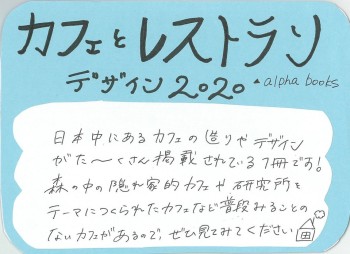 カフェとレストラン
デザイン2020 ▲alpha books
日本中にあるカフェの造りやデザイン
がた〜くさん掲載されている1冊です!
森の中の隠れ家的カフェや研究所を
テーマにつくられたカフェなど普段みることの
ないカフェがあるので、ぜひ見てみてください